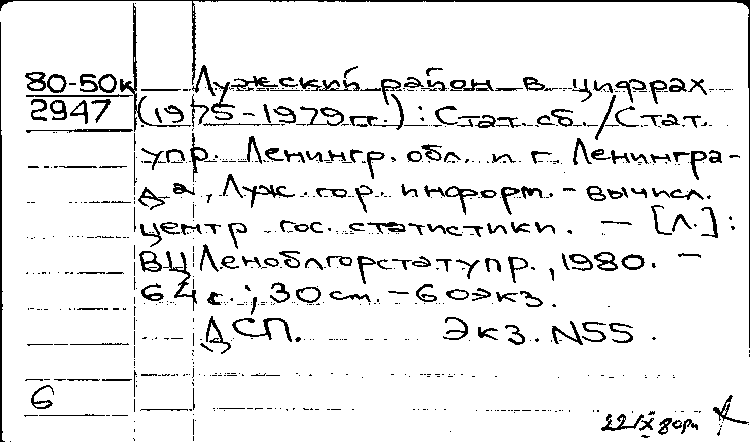 80-50к Лужский район в цифрах
2947 (1975-1979гг.) : Стат. сб. / Стат.
упр. Ленингр. обл. и г. Ленингра-
да, Луж. гор. информ.-вычисл.
центр гос. статистики. — [Л.] :
ВЦ Леноблгорстатупр., 1980. —
64 с. ; 30 см. - 60 экз.
ДСП. Экз. N55.
6
22/X 80